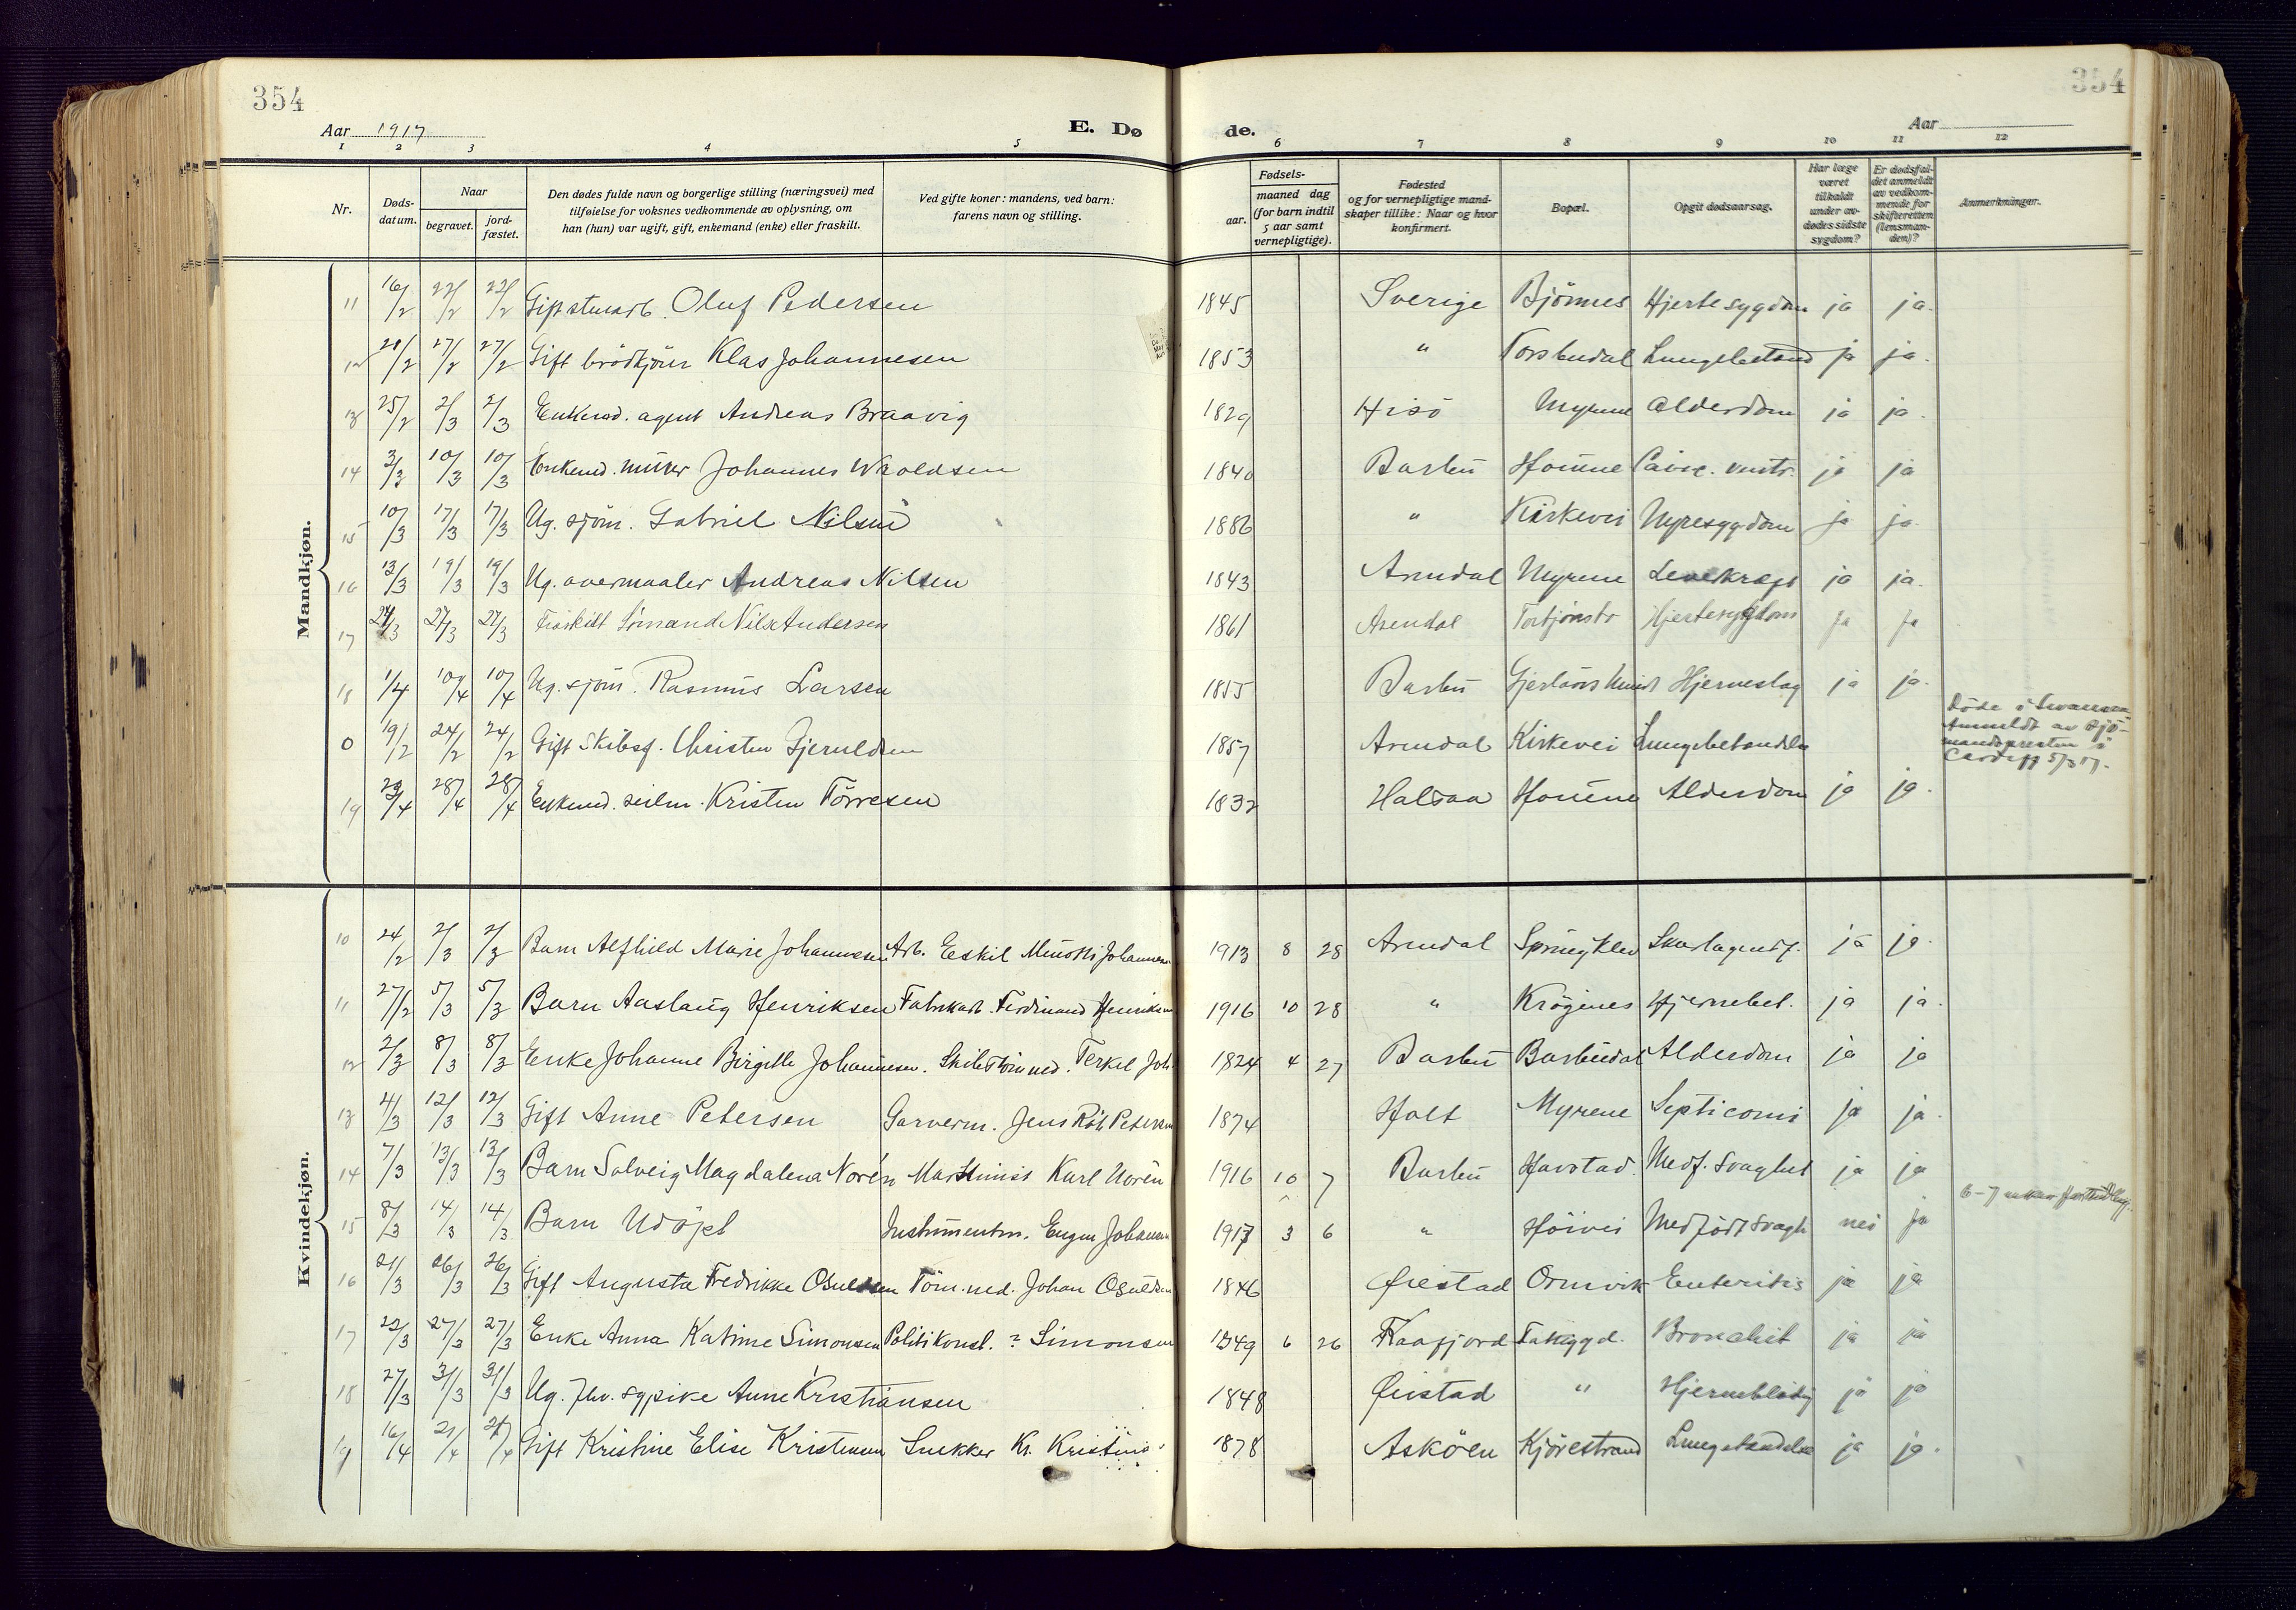 354
354
Aar 1917
E. Dø
de.
Aar
1 2 3 4 5 6 7 8 9 10 11 12
Nr.
Døds-
datum.
Naar
begravet.
jord-
fæstet.
Den dødes fulde navn og borgerlige stilling (næringsvei) med
tilføielse for voksnes vedkommende av oplysning, om
han (hun) var ugift, gift, enkemand (enke) eller fraskilt.
Ved gifte koner: mandens, ved barn:
farens navn og stilling.
Fødsels-
aar.
maaned dag
(for barn indtil
5 aar samt
vernepligtige).
Fødested
og for vernepligtige mand-
skaper tillike: Naar og hvor
konfirmert.
Bopæl.
Opgit dødsaarsag.
Har læge
været
tilkaldt
under av-
dødes sidste
sygdom?
Er dødsfal-
det anmeldt
av vedkom-
mende for
skifteretten
(lensman-
den)?
Anmerkninger.
Mandkjøn.
11 16/2 22/2 22/2 Gift stuearb. Oluf Pedersen 1845 Sverige Bjönnes Hjertesygdom ja ja.
12 /2 27/2 27/2 Gift brödkjører Klas Johannesen 1853 " Lungebetænd ja ja.
13 25/2 2/3 2/3 Enkemd. agent Andreas Braavig 1829 Hisö Myrene Alderdom ja ja.
14 3/3 10/3 10/3 Enkemd. murer Johannes Wroldsen 1840 Barbu Homme ja ja
15 10/3 17/3 17/3 Ug. sjöm. Gabriel Nilsen 1886 " Kirkevei Nyresygdom ja ja.
16 13/3 19/3 19/3 Ug. overmaaler Andreas Nilsen 1843 Arendal Myrene Leverkræft ja ja.
17 /3 27/3 27/3 Fraskilt Sømand Nils Andersen 1861 Arendal Hjertesygdom ja ja
18 1/4 10/4 10/4 Ug. sjöm. Rasmus Larsen 1855 Barbu Hjerneslag ja ja.
0 19/2 24/2 24/2 Gift Skibsf. Christen Gjeruldsen 1857 Arendal Kirkevei Lungebetændelse
Døde i Swansea
Anmeldt av sjö-
mandspresten i
Cardiff 5/3 17.
19 23/4 28/4 28/4 Enkemd. seilm. Kristen Törresen 1832 Halsaa Homme Alderdom ja ja.
Kvindekjøn.
10 24/2 2/3 2/3 Barn Alfhild Marie Johannesen Arb. Eskil Johannesen 1913 8 28 Arendal Springklev Skarlagensf. ja ja.
11 27/2 5/3 5/3 Barn Aaslaug Henriksen Fabrikarb. Ferdinand Henriksen 1916 10 28 " Krögenes Hjernebet. ja ja.
12 2/3 8/3 8/3 Enke Johanne Birgitte Johannesen. Skibstömmed. Terkel Joh. 1824 4 27 Barbu Barbudal Alderdom ja ja
13 4/3 12/3 12/3 Gift Anne Petersen Garverm. Jens Petersen 1874 Holt Myrene Septicomi ja ja.
14 7/3 13/3 13/3 Barn Solveig Magdalena Norén Maskinist Karl Norén 1916 10 7 Barbu Havstad. Medf. Svaghet ja ja
15 8/3 14/3 14/3 Barn Udöpt Instrumentm. Eugen Johansen 1917 3 6 " Höivei Medfödt Svagh nei ja
6-7
16 21/3 26/3 26/3 Gift Augusta Fredrikke Osuldsen Töm.med. Johan Osuldsen 1846 Øiestad Osmvik Enteritis ja ja
17 22/3 27/3 27/3 Enke Anna Katrine Simonsen Politikonst. ? Simonsen 1849 6 26 Kaafjord Fattiggd. Bronchit ja ja
18 27/3 31/3 31/3 Ug. fhv. sypike Anne Kristiansen 1848 Øiestad " Hjerneblödn ja ja
19 16/4 21/4 21/4 Gift Kristine Elise Kristensen Snekker Kr. Kristens. 1878 Asköen Kjörestrand Lungebetændelse ja ja.